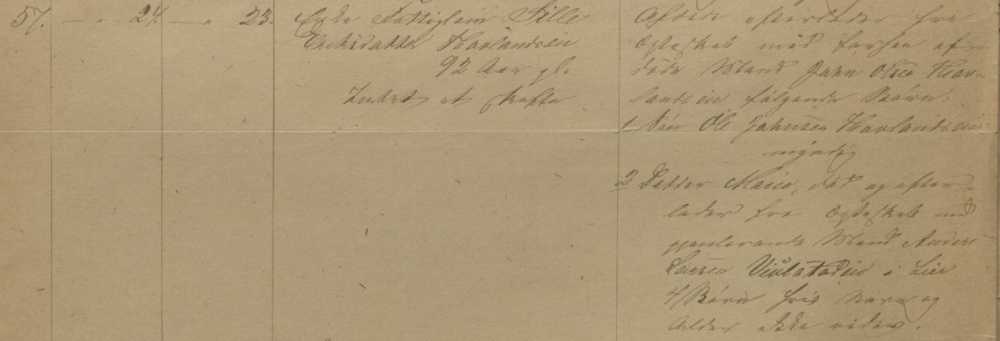 57. — " — 24. — " 23. Enke Fattiglem Sille
Eriksdatter Havlandseie
92 Aar gl.
Intet at skifte
Afdøde efterlader fra
Ægteskab med forhen af-
døde Mand John Olsen Hav-
landseie følgende Børn:
1 Søn Ole Johnsen Havlandseie
myndig
2 Datter Maria, død og efter-
lader fra Ægteskab med
gjenlevende Mand Anders
Larsen Viulstadeie i Lier
4 Børn hvis Navn og
Alder ikke vides.